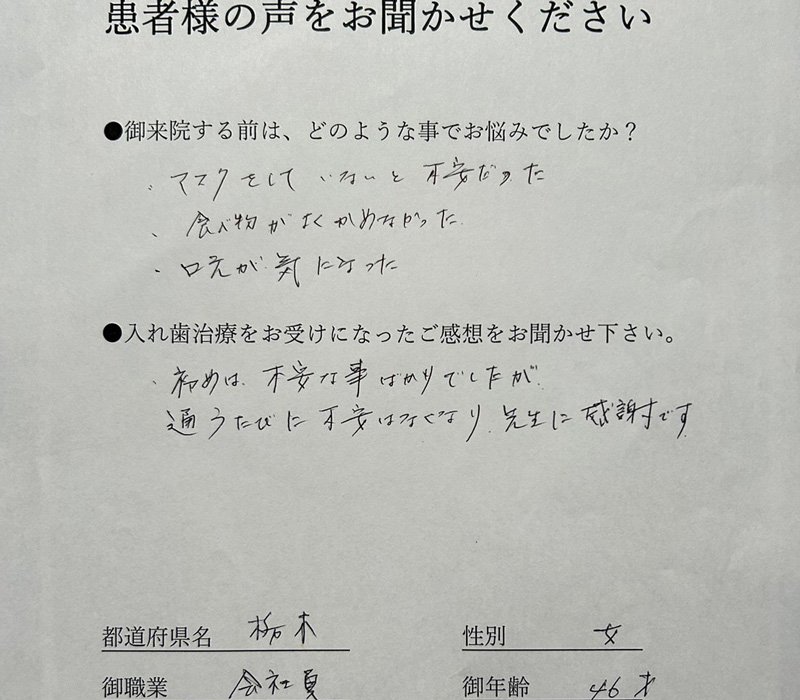 患者様の声をお聞かせください
●御来院する前は、どのような事でお悩みでしたか？
・マスクをして いないと 不安だった
・食べ物が よくかめなかった
・口元が 気になった
●入れ歯治療をお受けになったご感想をお聞かせ下さい。
・初めは 不安な事ばかりでしたが
通うたびに 不安はなくなり 先生に感謝です
都道府県名 栃木 性別 女
御職業 会社員 御年齢 46才